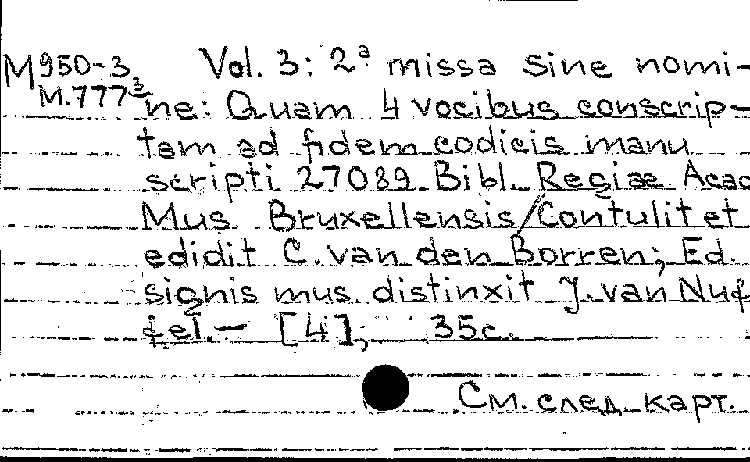 M950-3 Vol. 3: 2ª missa sine nomi-
M.777³ ne: Quam 4 vocibus conscrip-
tam ad fidem codicis manu
scripti 27089 Bibl. Regiae Acad
Mus Bruxellensis / Contulit et
edidit C. van den Borren; Ed.
signis mus distinxit J. van Nuf
fel. — [4], 35c.
См. след. карт.